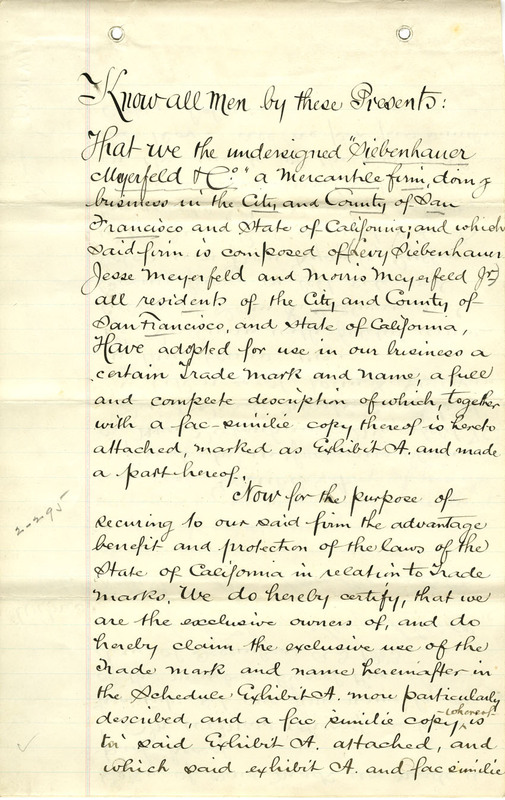 Know all men by these Presents:
That we the undersigned "Siebenhauer
Meyerfeld & Co." a Mercantile firm, doing
business in the City and County of San
Francisco and State of California; and which
said firm is composed of (Levy Siebenhauer
Jesse Meyerfeld and Morris Meyerfeld Jr)
all residents of the City and County of
San Francisco, and State of California,
Have adopted for use in our business a
certain Trade mark and name, a full
and complete description of which, together
with a fac-similie copy thereof is hereto
attached, marked as Exhibit A. and made
a part hereof.
Now for the purpose of
securing to our said firm the advantage
benefit and protection of the laws of the
State of California in relation to Trade
marks. We do hereby certify, that we
are the exclusive owners of, and do
hereby claim the exclusive use of the
Trade mark and name hereinafter in
the Schedule Exhibit A. more particularly
described, and a fac similie copy whereof is
in said Exhibit A. attached, and
which said exhibit A. and fac similie
2-295